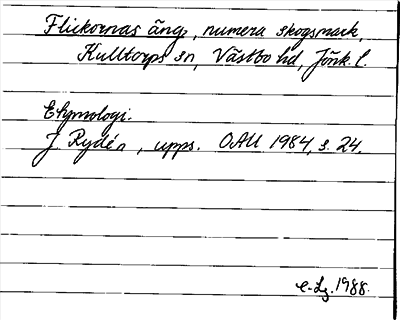 Flickornas äng, numera skogsmark,
Kulltorps sn, Västbo hd, Jönk. l.
Etymologi.
J Rydén, upps. OAU 1984, s. 24.
C-Lg. 1988.